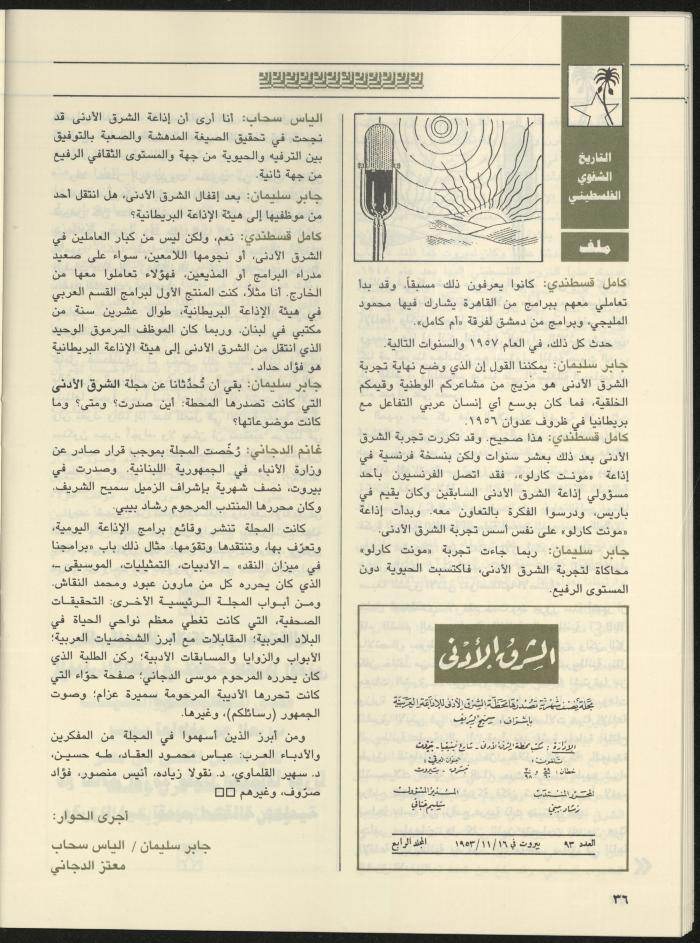 التاريخ
الشفوي
الفلسطيني
ملف
كامل قسطندي: كانوا يعرفون ذلك مسبقاً، وقد بدأ
تعاملي معهم ببرامج من القاهرة يشارك فيها محمود
المليجي، وبرامج من دمشق لفرقة «أم كامل».
حدث كل ذلك، في العام ١٩٥٧ والسنوات التالية.
جابر سليمان: يمكننا القول إن الذي وضع نهاية تجربة
الشرق الأدنى هو مزيج من مشاعركم الوطنية وقيمكم
الخلقية، فما كان بوسع أي إنسان عربي التفاعل مع
بريطانيا في ظروف عدوان ١٩٥٦.
كامل قسطندي: هذا صحيح. وقد تكررت تجربة الشرق
الأدنى بعد ذلك بعشر سنوات ولكن بنسخة فرنسية في
إذاعة «مونت كارلو»، فقد اتصل الفرنسيون بأحد
مسؤولي إذاعة الشرق الأدنى السابقين وكان يقيم في
باريس، ودرسوا الفكرة بالتعاون معه. وبدأت إذاعة
«مونت كارلو» على نفس أسس تجربة الشرق الأدنى.
جابر سليمان: ربما جاءت تجربة «مونت كارلو»
محاكاة لتجربة الشرق الأدنى، فاكتسبت الحيوية دون
المستوى الرفيع.
الشرق الأدنى
مجلة نصف شهرية تصدرها محطة الشرق الأدنى للإذاعة العربية
بإشراف: سميح الشريف
الإدارة: مكتب محطة الشرق الأدنى - شارع
بيروت
المحرر المنتدب
رشاد بيبي
المدير المسؤول
العدد ٩٣ بيروت في ١٩٥٣/١١/١٦ المجلد الرابع
الياس سحاب: أنا أرى أن إذاعة الشرق الأدنى قد
نجحت في تحقيق الصيغة المدهشة والصعبة بالتوفيق
بين الترفيه والحيوية من جهة والمستوى الثقافي الرفيع
من جهة ثانية.
جابر سليمان: بعد إقفال الشرق الأدنى، هل انتقل أحد
من موظفيها إلى هيئة الإذاعة البريطانية؟
كامل قسطندي: نعم، ولكن ليس من كبار العاملين في
الشرق الأدنى، أو نجومها اللامعين، سواء على صعيد
مدراء البرامج أو المذيعين، فهؤلاء تعاملوا معها من
الخارج. أنا مثلاً، كنت المنتج الأول لبرامج القسم العربي
في هيئة الإذاعة البريطانية، طوال عشرين سنة من
مكتبي في لبنان. وربما كان الموظف المرموق الوحيد
الذي انتقل من الشرق الأدنى إلى هيئة الإذاعة البريطانية
هو فؤاد حداد .
جابر سليمان: بقي أن تُحدّثانا عن مجلة الشرق الأدنى
التي كانت تصدرها المحطة: أين صدرت؟ ومتى؟ وما
كانت موضوعاتها؟
غانم الدجاني: رُخّصت المجلة بموجب قرار صادر عن
وزارة الأنباء في الجمهورية اللبنانية. وصدرت في
بيروت، نصف شهرية بإشراف الزميل سميح الشريف.
وكان محررها المنتدب المرحوم رشاد بيبي.
كانت المجلة تنشر وقائع برامج الإذاعة اليومية،
وتعرّف بها، وتنتقدها وتقوّمها. مثال ذلك باب «برامجنا
في ميزان النقد» ــ الأدبيات، التمثيليات، الموسيقى ــ،
الذي كان يحرره كل من مارون عبود ومحمد النقاش.
ومن أبواب المجلة الرئيسية الأخرى: التحقيقات
الصحفية، التي كانت تغطي معظم نواحي الحياة في
البلاد العربية؛ المقابلات مع أبرز الشخصيات العربية؛
الأبواب والزوايا والمسابقات الأدبية؛ ركن الطلبة الذي
كان يحرره المرحوم موسى الدجاني؛ صفحة حوّاء التي
كانت تحررها الأديبة المرحومة سميرة عزام؛ وصوت
الجمهور (رسائلكم)، وغيرها.
ومن أبرز الذين أسهموا في المجلة من المفكرين
والأدباء العرب: عباس محمود العقاد، طه حسين،
د. سهير القلماوي، د. نقولا زياده، أنيس منصور، فؤاد
صرّوف، وغيرهم □□
أجرى الحوار:
جابر سليمان / الياس سحاب
معتز الدجاني
٣٦